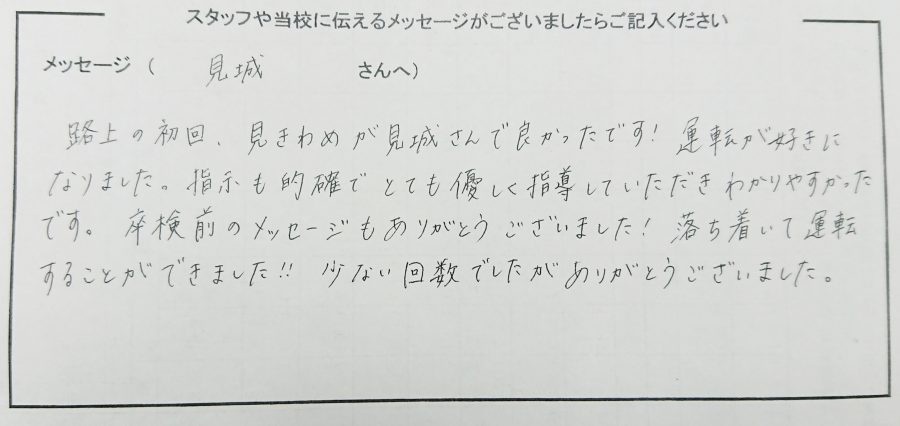 スタッフや当校に伝えるメッセージがございましたらご記入ください
メッセージ ( 見城 さんへ)
路上の初回、見きわめが見城さんで良かったです! 運転が好きに
なりました。指示も的確でとても優しく指導していただきわかりやすかった
です。卒検前のメッセージもありがとうございました! 落ち着いて運転
することができました!! 少ない回数でしたがありがとうございました。